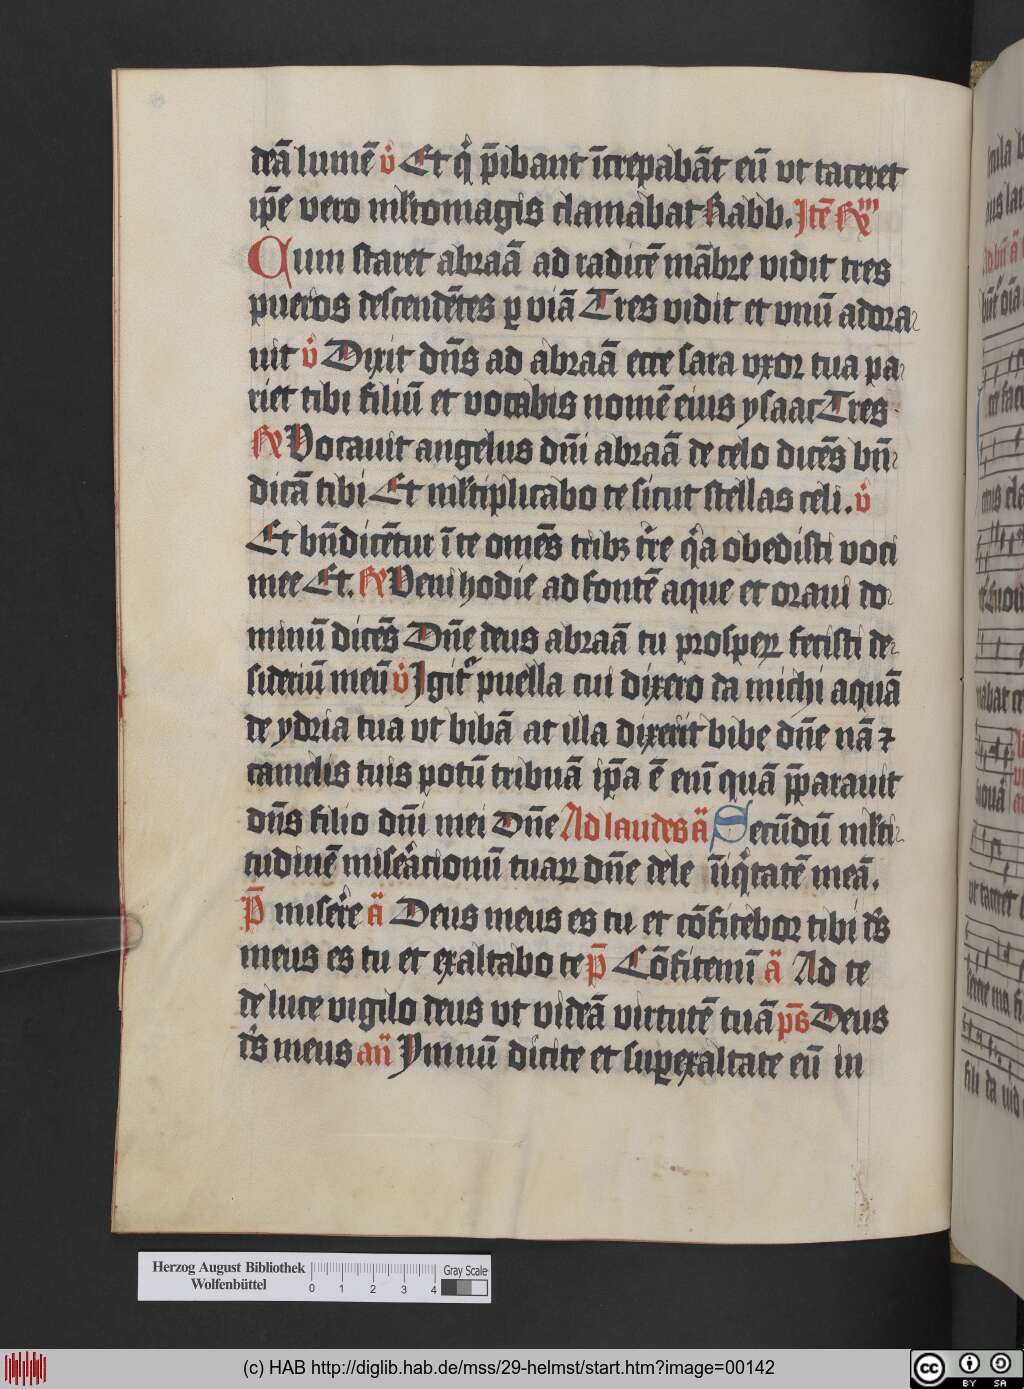 deā lumē v̊ Et qͥ p̄ibant īcrepabāt eū vt taceret
ip̄e vero ml̓tomagis clamabat Rabb. Jtē Rm̅
Cum staret abraā ad radicē mābre vidit tres
pueros descendētes ꝑ viā Tres vidit et vnū adora
uit v̊ Dixit dn̄s ad abraā ecce sara vxor tua pa
riet tibi filiū et vocabis nomē eius ysaac Tres
R̷ Vocauit angelus dn̄i abraā de celo dicēs bn̄
dicā tibi Et ml̓tiplicabo te sicut stellas celi. v̊
Et bn̄dicētur ī te omēs tribꝫ tr̄e qͥa obedisti voci
mee Et. R̷ Veni hodie ad fontē aque et oraui do
minū dicēs Dn̄e deus abraā tu prosperꝝ fecisti de
sideriū meū v̊ Jgit᷑ puella cui dixero da michi aquā
de ydria tua vt bibā at illa dixerit bibe dn̄e nā ⁊
camelis tuis potū tribuā ip̄a ē enī quā p̄parauit
dn̄s filio dn̄i mei Dn̄e Ad laudes ā Secūdū ml̓ti
tudinē miseͣcionū tuaꝝ dn̄e dele īiqͥtatē meā.
P̄ miser̄e ā Deus meus es tu et cōfitebor tibi ds̓
meus es tu et exaltabo te p̄ Cōfitemī ā Ad te
de luce vigilo deus vt videā virtutē tuā ps̄ Deus
ds̓ meus an̄ Ymnū dicite et suꝑexaltate eū in
Herzog August Bibliothek
Wolfenbüttel
0 1 2 3 4
Gray Scale
(c) HAB http://diglib.hab.de/mss/29-helmst/start.htm?image=00142
cc BY SA